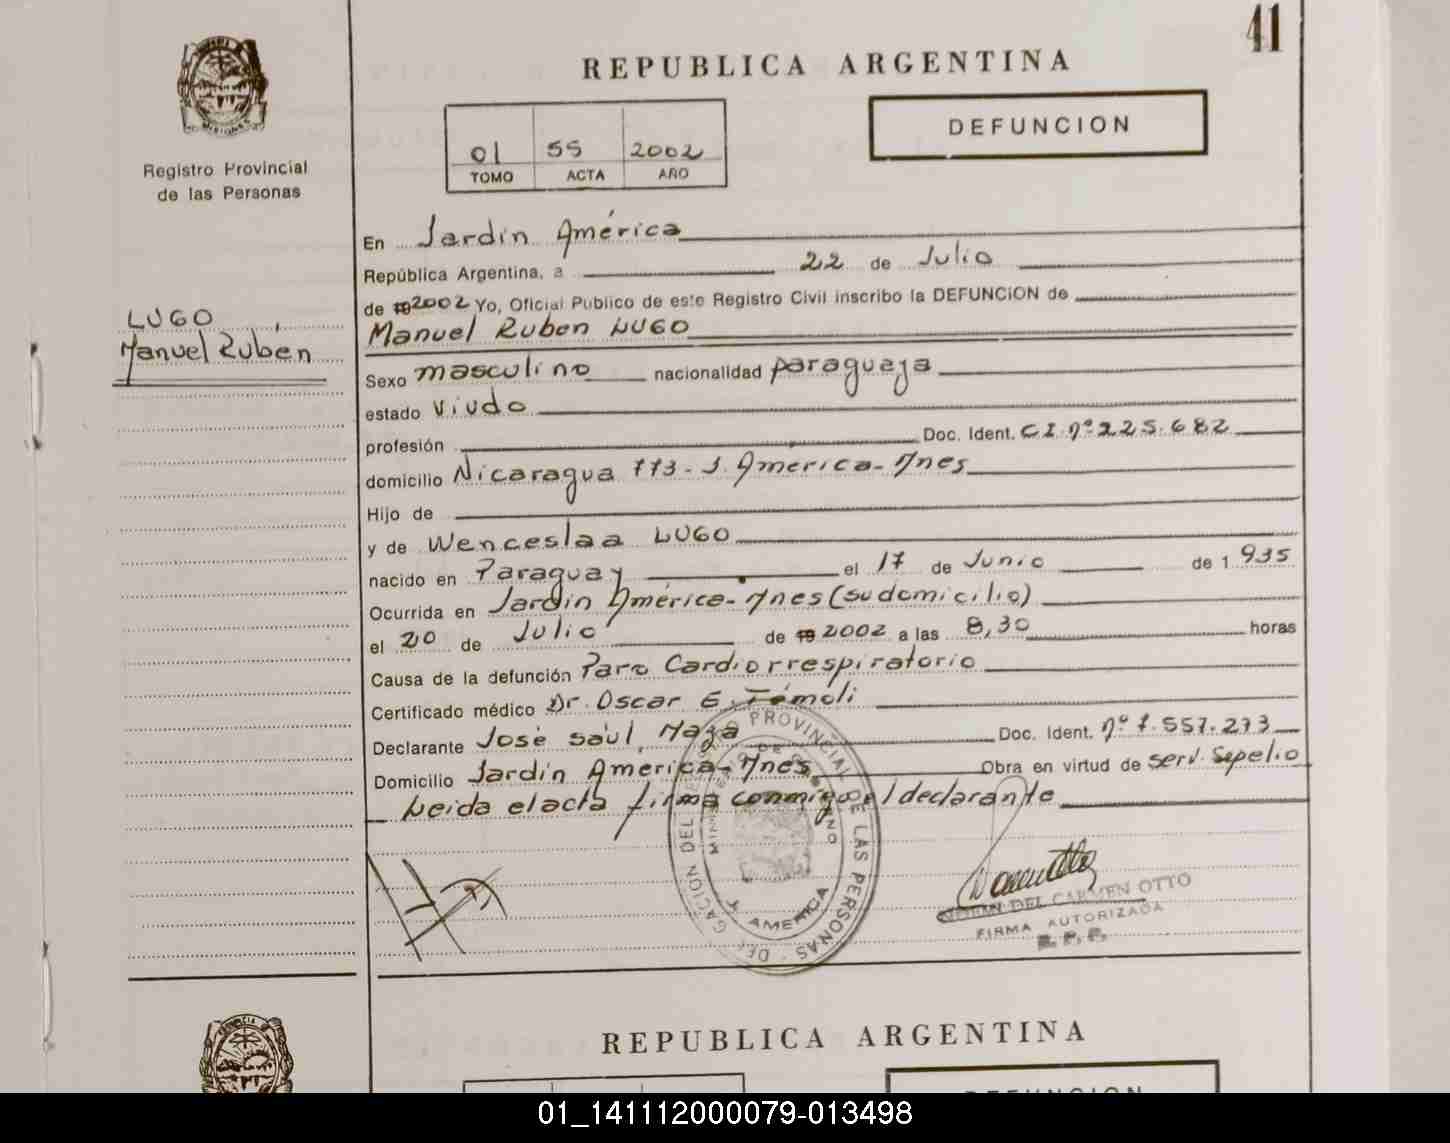 41
REPUBLICA ARGENTINA
MISIONES
Registro Provincial
de las Personas
01 55 2002
TOMO ACTA AÑO
DEFUNCION
LUGO
Manuel Rubén
En Jardín América
República Argentina, a 22 de Julio
de 19 2002 Yo, Oficial Público de este Registro Civil inscribo la DEFUNCION de
Manuel Ruben LUGO
Sexo masculino nacionalidad paraguaya
estado viudo
profesión Doc. Ident. C I nº 225.682
domicilio Nicaragua 773 - J. America - Mnes
Hijo de
y de Wenceslaa LUGO
nacido en Paraguay el 17 de Junio de 1 935
Ocurrida en Jardín América - Mnes (su domicilio)
el 20 de Julio de 19 2002 a las 8,30 horas
Causa de la defunción Paro Cardiorrespiratorio
Certificado médico Dr. Oscar E. Témoli
Declarante José saúl Maza Doc. Ident. nº 7.557.273
Domicilio Jardín America - Mnes Obra en virtud de serv. Sepelio
Leida el acta firma conmigo el declarante
PROVINCIAL DE LAS PERSONAS
MINISTERIO DE GOBIERNO
AMERICA
DEL CARMEN OTTO
FIRMA AUTORIZADA
REPUBLICA ARGENTINA
DEFUNCION
01_141112000079-013498